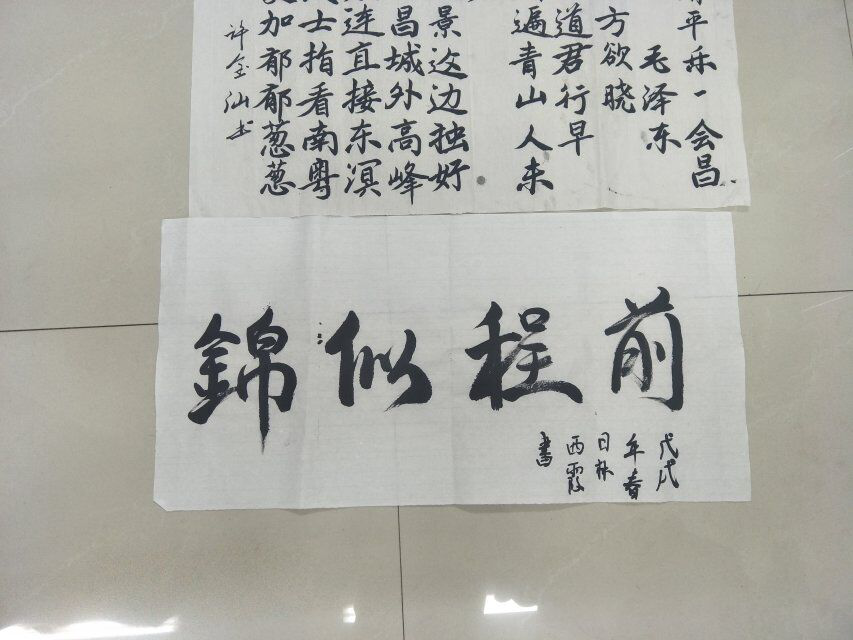 平乐一会昌
毛泽东
方欲晓
道君行早
遍青山人未
景这边独好
昌城外高峰
连直接东溟
士指看南粤
加郁郁葱葱
许金仙书
前程似錦
戊戌
年春
日林
西霞
書